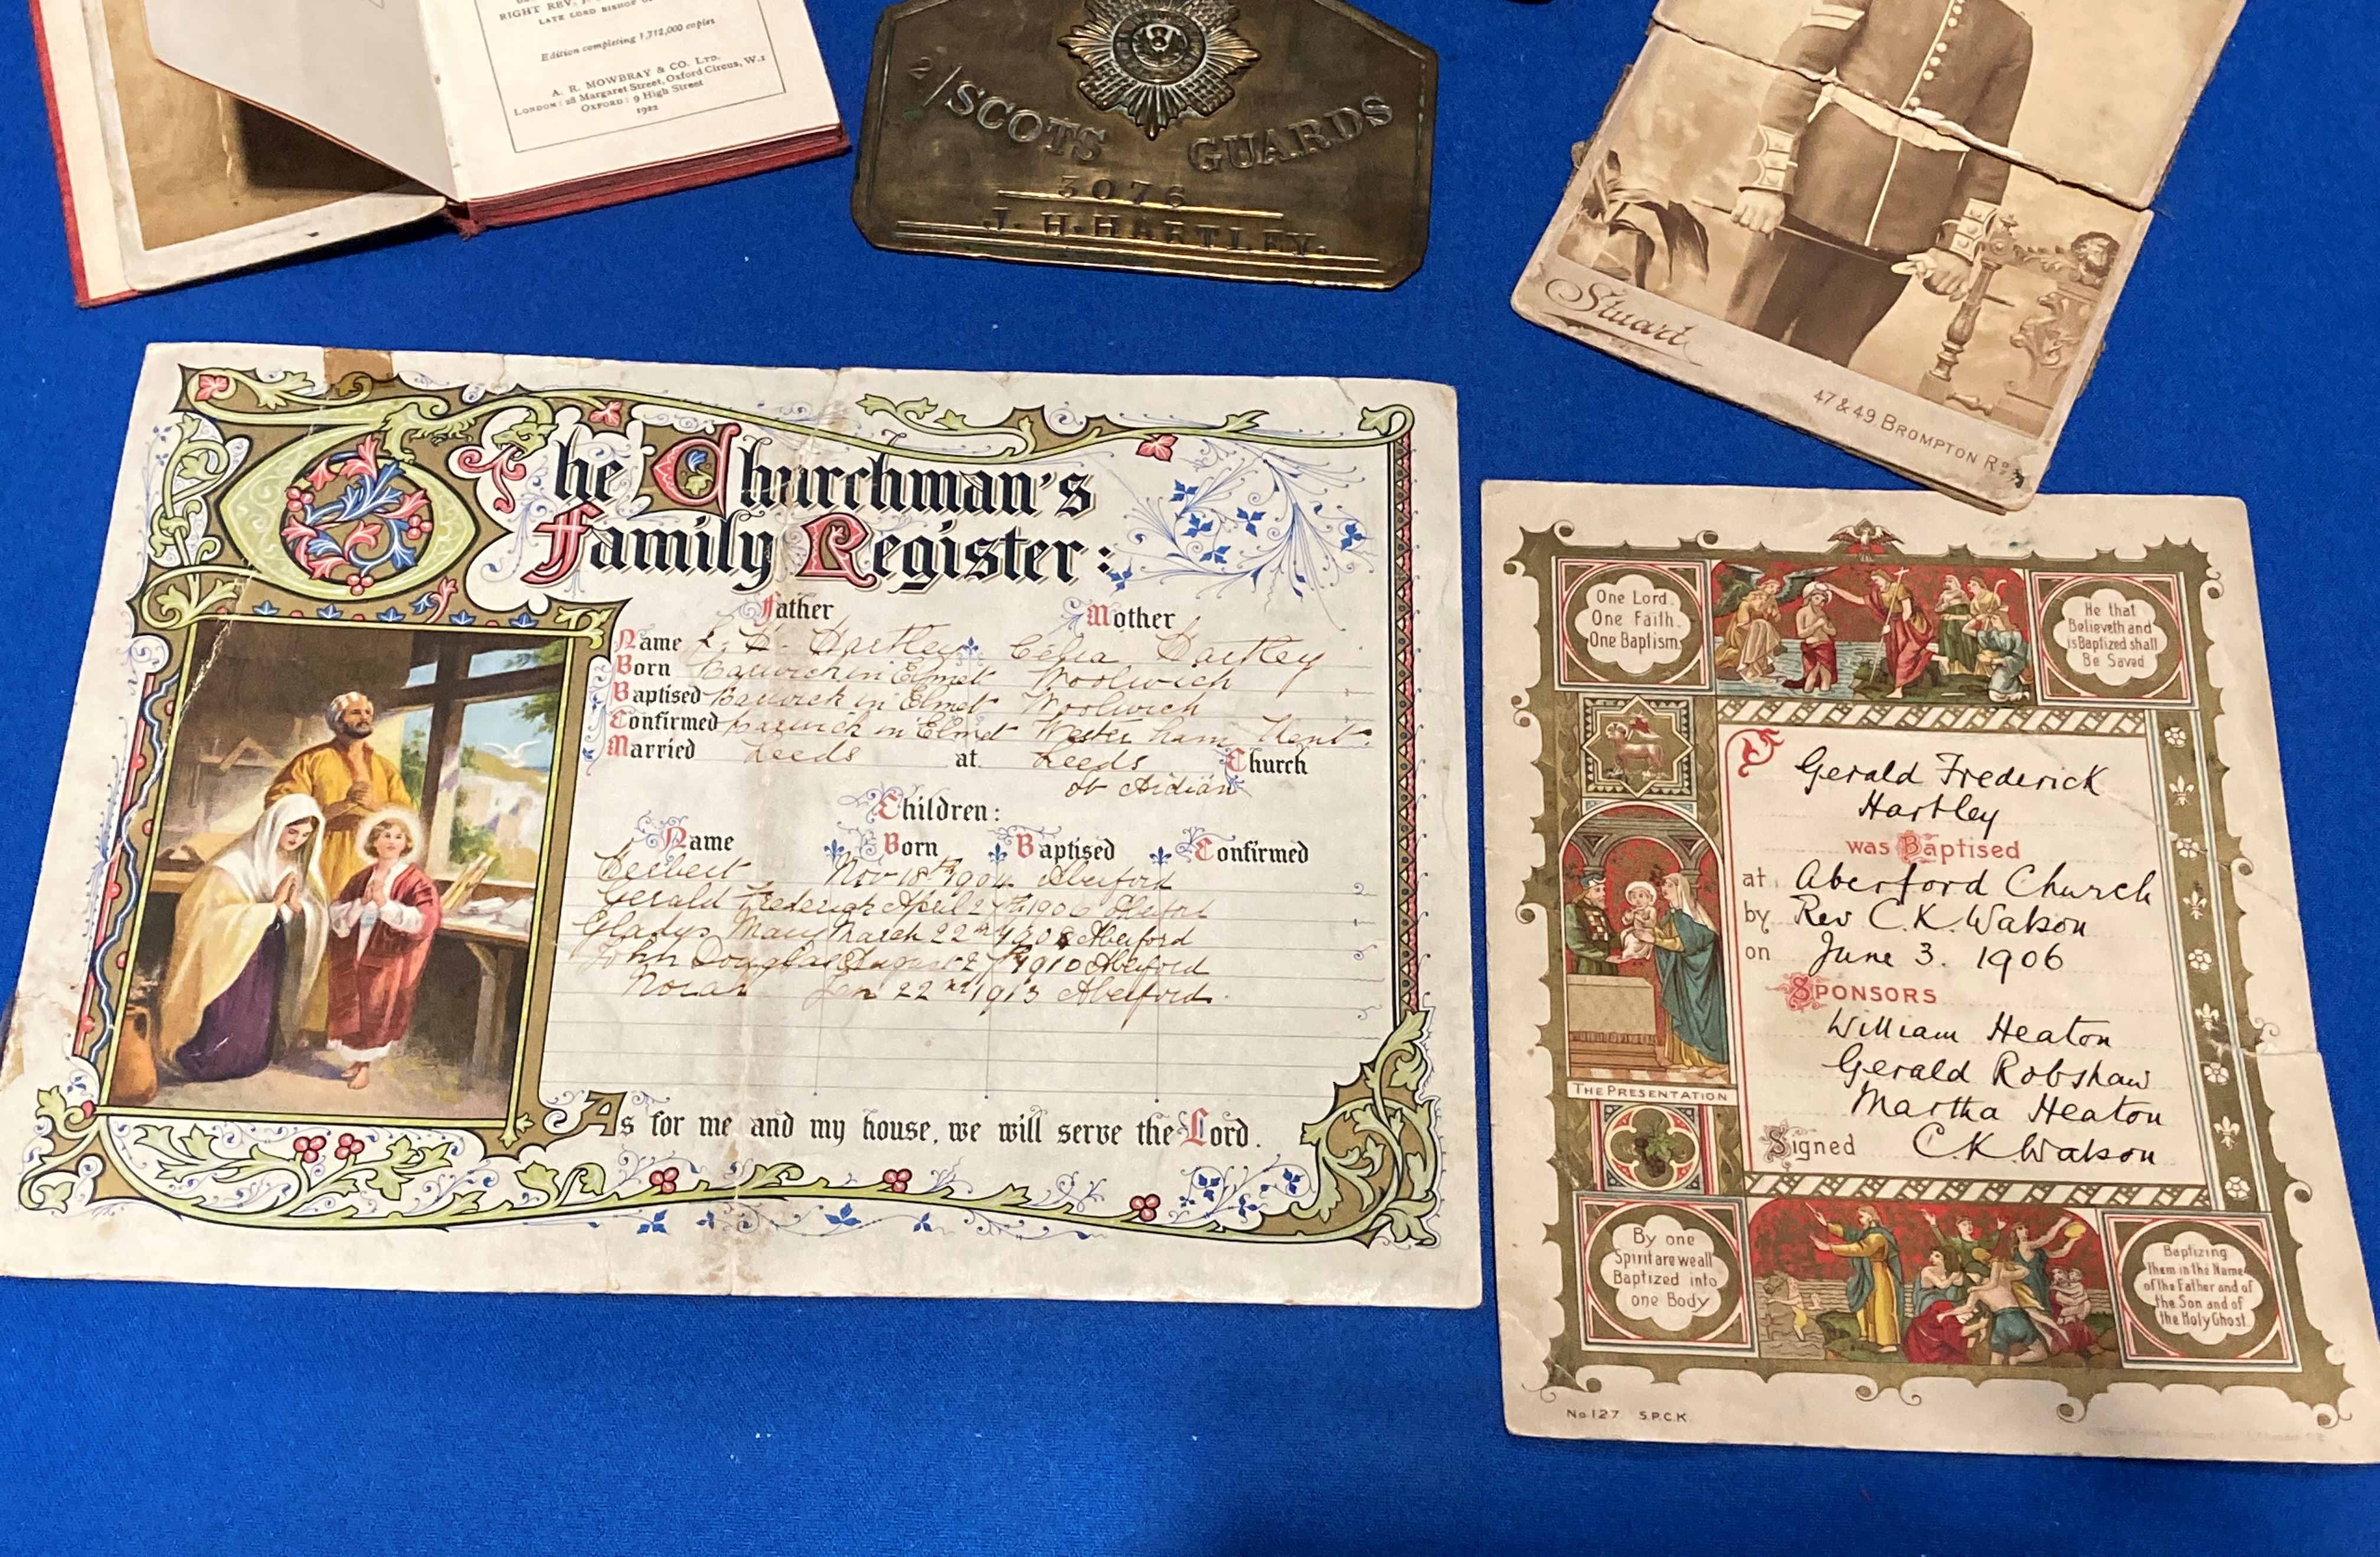 RIGHT REV. J.
LATE LORD BISHOP OF
Edition completing 1,712,000 copies
A. R. MOWBRAY & CO. LTD.
LONDON: 28 Margaret Street, Oxford Circus, W.1
OXFORD: 9 High Street
1922
2/SCOTS GUARDS
3076
J. H. HARTLEY.
Stuart
47 & 49, BROMPTON RD
The Churchman's
Family Register:
Father Mother
Name H. Hartley Celia Hartley
Born Barwick in Elmet Woolwich
Baptised Barwick in Elmet Woolwich
Confirmed Barwick in Elmet Wester ham Kent.
Married Leeds at Leeds Church
St Aidian
Children:
Name Born Baptised Confirmed
Herbert Nov 18th 1904 Aberford
Gerald Frederick April 27th 1906 Aberford
Gladys Mary March 22nd 1908 Aberford
John Douglas August 27th 1910 Aberford
Norah Jan 22nd 1913 Aberford.
As for me and my house, we will serve the Lord.
One Lord.
One Faith.
One Baptism.
He that
Believeth and
is Baptized shall
Be Saved
Gerald Frederick
Hartley
was Baptised
at Aberford Church
by Rev C. K. Watson
on June 3. 1906
SPONSORS
William Heaton
Gerald Robshaw
Martha Heaton
Signed C. K. Watson
THE PRESENTATION
By one
Spirit are we all
Baptized into
one Body
Baptizing
them in the Name
of the Father and of
the Son and of
the Holy Ghost.
No. 127 S.P.C.K.